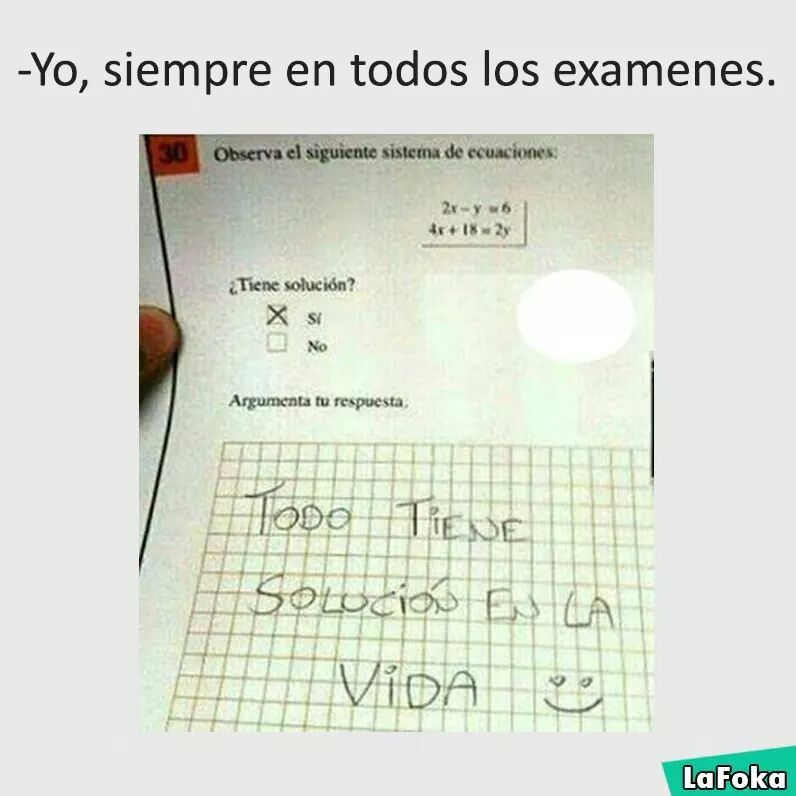 -Yo, siempre en todos los examenes.
30 Observa el siguiente sistema de ecuaciones:
2x - y = 6
4x + 18 = 2y
¿Tiene solución?
X Sí
No
Argumenta tu respuesta.
TODO TIENE
SOLUCIÓN EN LA
VIDA
LaFoka